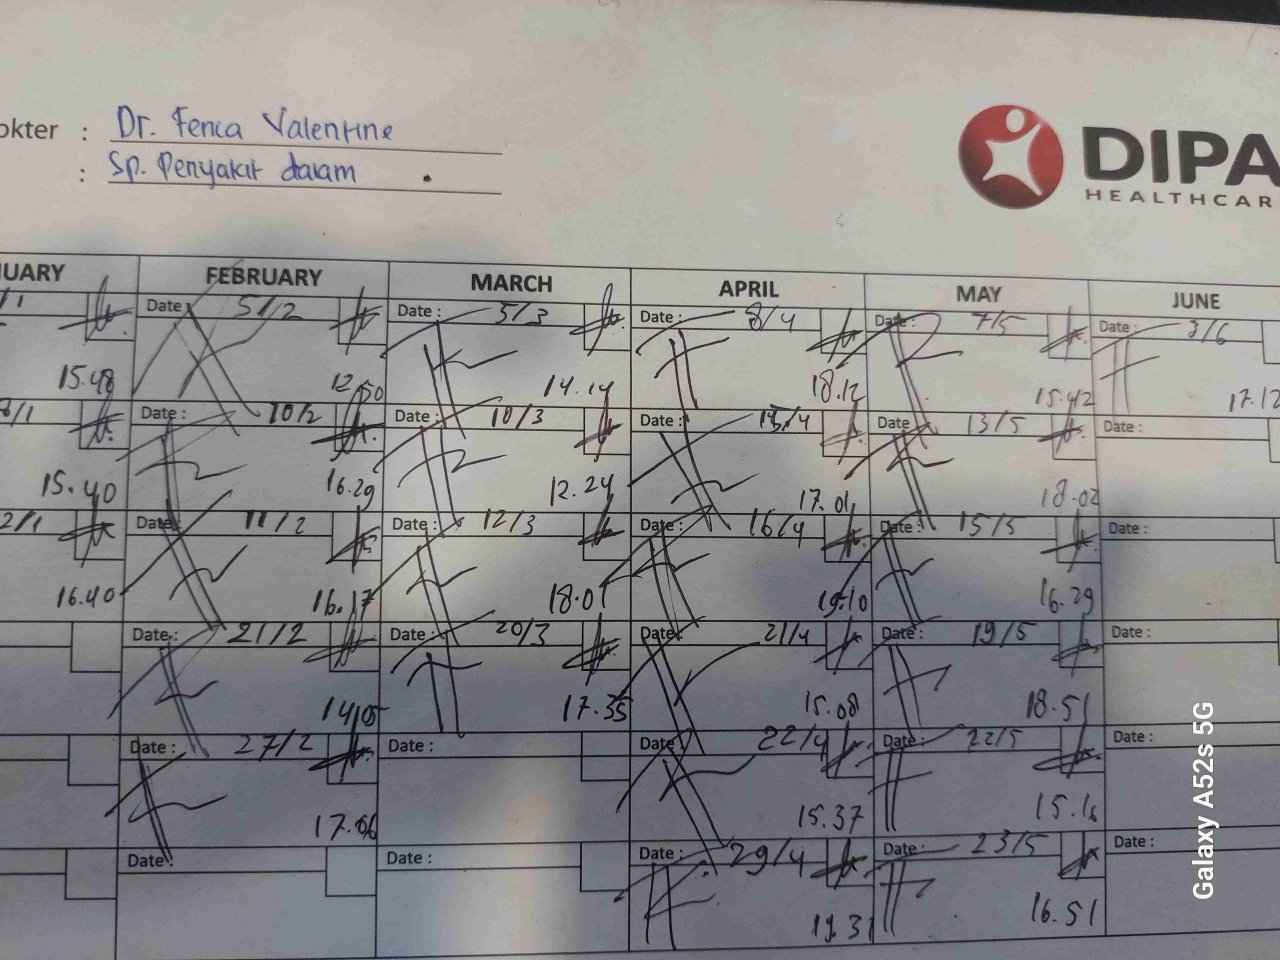 okter : Dr. Fenca Valentine
: Sp. Penyakit dalam
DIPA
HEALTHCAR
UARY FEBRUARY MARCH APRIL MAY JUNE
/1 Date : 5/2 Date : 5/3 Date : 8/4 Date : 7/5 Date : 3/6
15.48 12.50 14.14 18.12 15.42 17.12
8/1 Date : 10/2 Date : 10/3 Date : /4 Date 13/5 Date :
15.40 16.29 12.24 17.01 18.02
2/1 Date : 11/2 Date : 12/3 Date : 16/4 Date : 15/5 Date :
16.40 16.17 18.01 19.10 16.29
Date : 21/2 Date : 20/3 Date : 21/4 Date : 19/5 Date :
14.05 17.35 15.08 18.51
Date : 27/2 Date : Date : 22/4 Date : 22/5 Date :
17.06 15.37 15.16
Date : Date : Date : 29/4 Date : 23/5 Date :
19.31 16.51
Galaxy A52s 5G